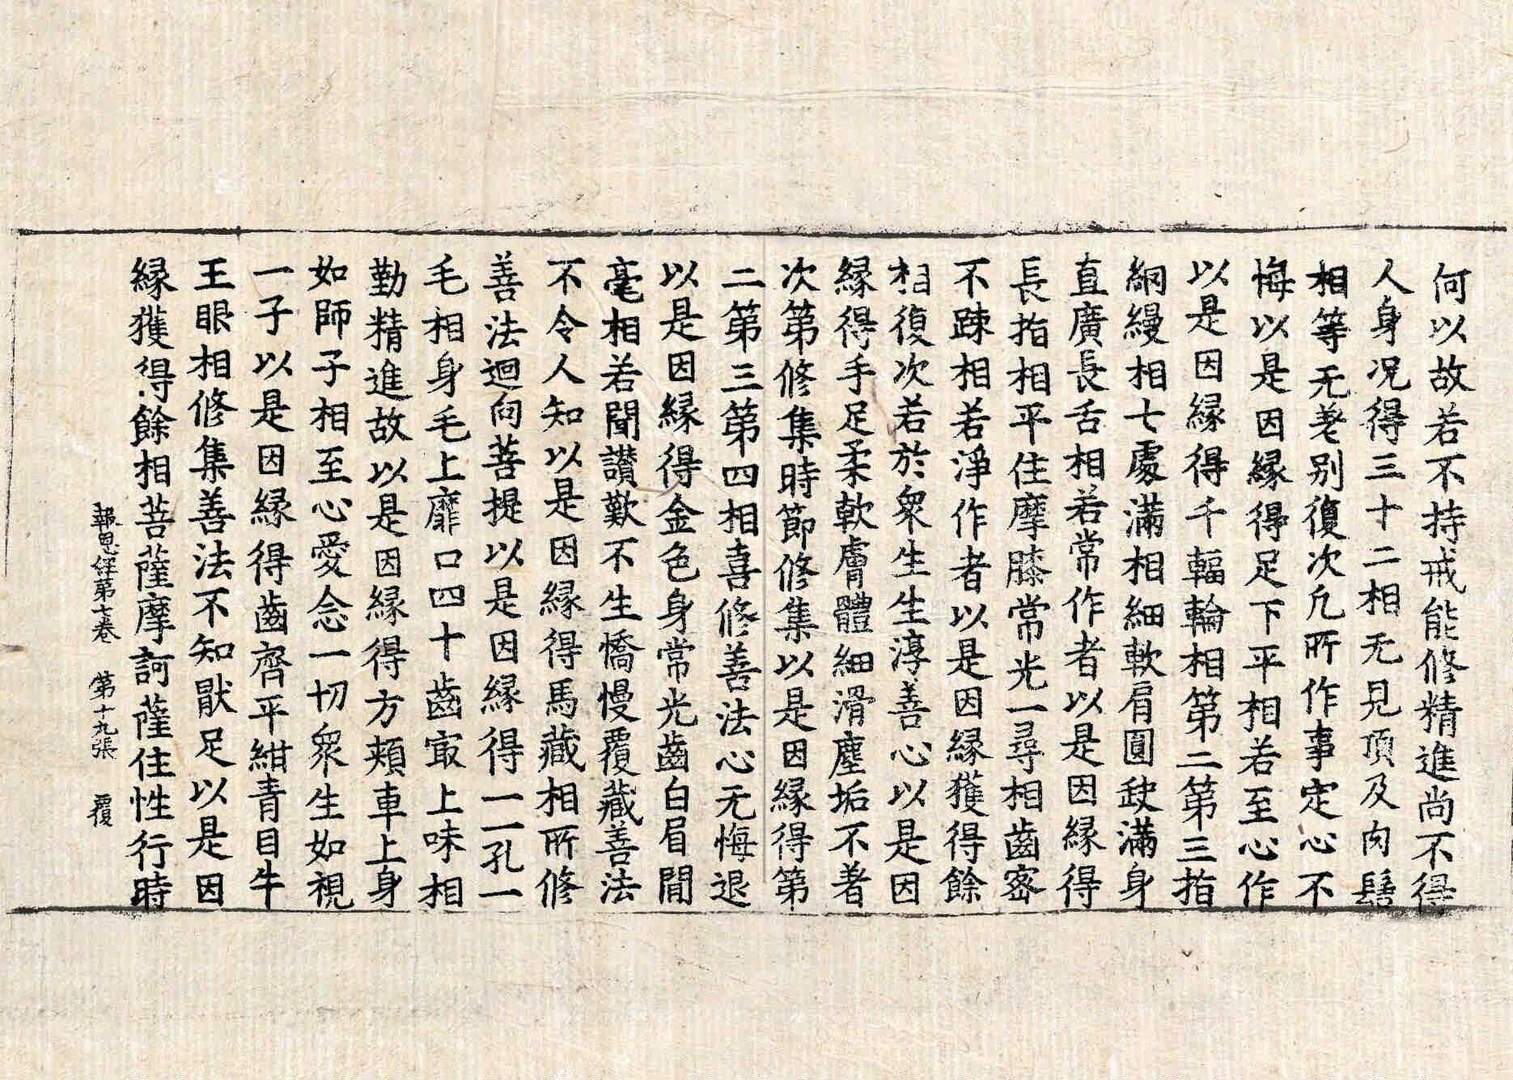 何以故若不持戒能修精進尚不得
人身况得三十二相无見頂及肉髻
相等无差别復次凢所作事定心不
悔以是因縁得足下平相若至心作
以是因縁得千輻輪相第二第三指
網縵相七處滿相細軟肩圓㪇滿身
直廣長舌相若常作者以是因縁得
長指相平住摩膝常光一尋相齒宻
不踈相若淨作者以是因縁獲得餘
相復次若於衆生生淳善心以是因
縁得手足柔軟膚體細滑塵垢不著
次第修集時節修集以是因縁得第
二第三第四相喜修善法心无悔退
以是因縁得金色身常光齒白眉間
毫相若聞讃歎不生憍慢覆藏善法
不令人知以是因縁得馬藏相所修
善法迴向菩提以是因縁得一一孔一
毛相身毛上靡口四十齒㝡上味相
勤精進故以是因縁得方頰車上身
如師子相至心愛念一切衆生如視
一子以是因縁得齒齊平紺青目牛
王眼相修集善法不知猒足以是因
縁獲得餘相菩薩摩訶薩住性行時
報恩経第七卷　第十九張　覆